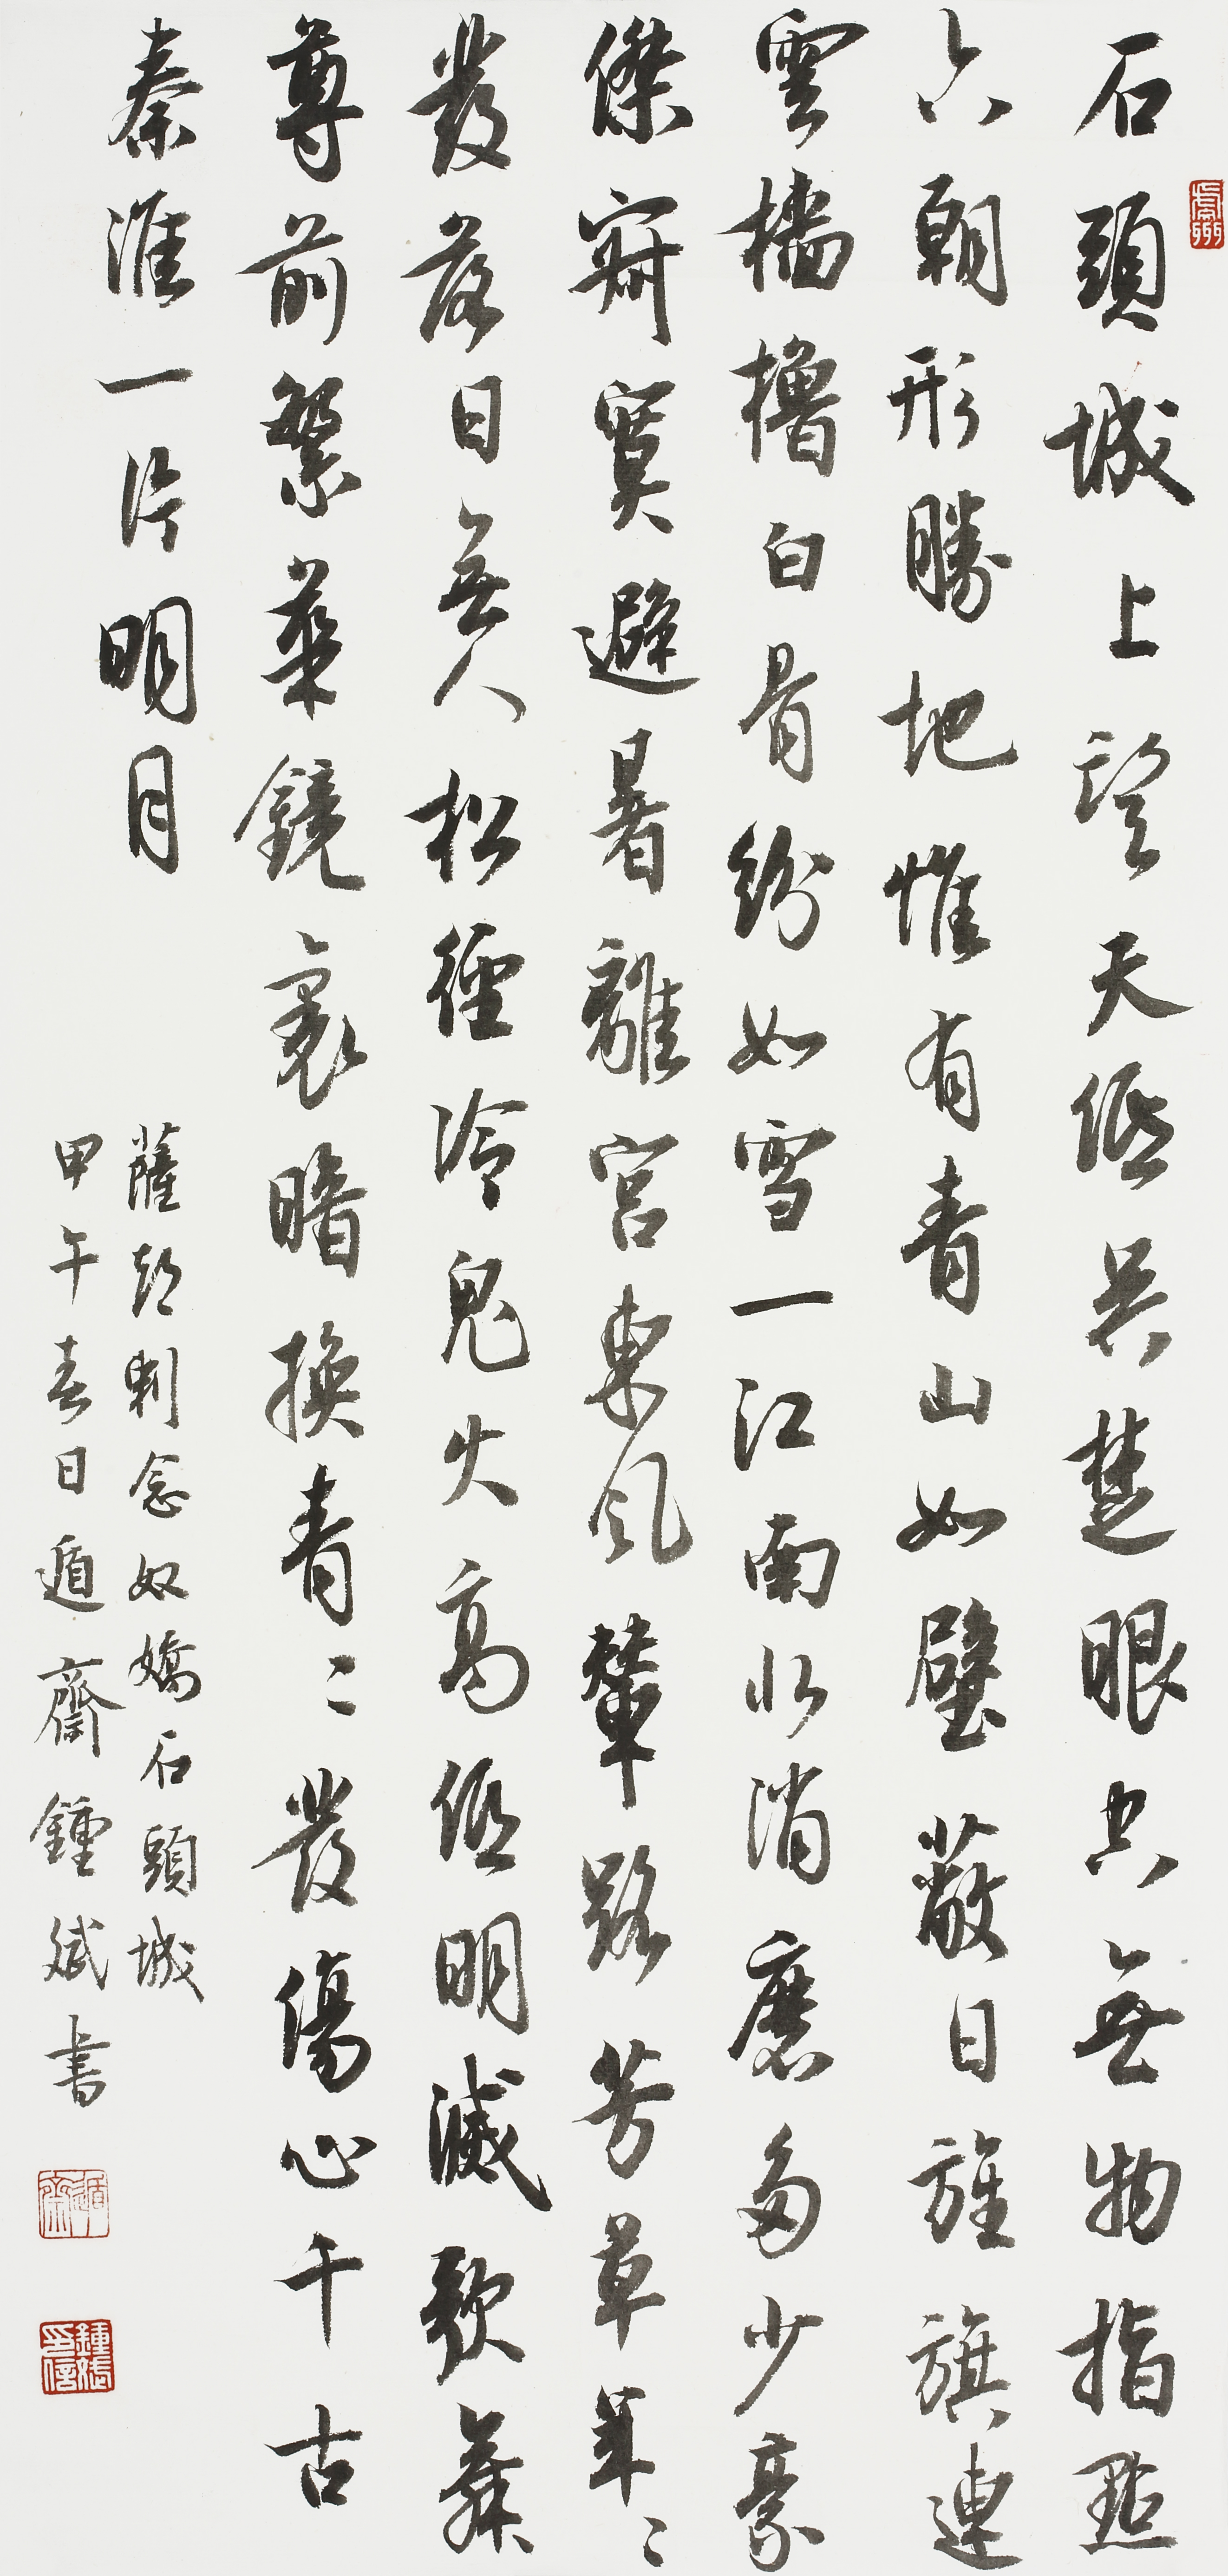 石頭城上望天低吳楚眼空無物指點
六朝形勝地惟有青山如壁蔽日旌旗連
雲檣櫓白骨紛如雪一江南北消磨多少豪
傑寂寞避暑離宮東風輦路芳草年〻
發落日無人松徑冷鬼火高低明滅歌舞
尊前繁華鏡裏暗換青〻髮傷心千古
秦淮一片明月
薩都剌念奴嬌石頭城
甲午春日遁齋鍾斌書
遁齋